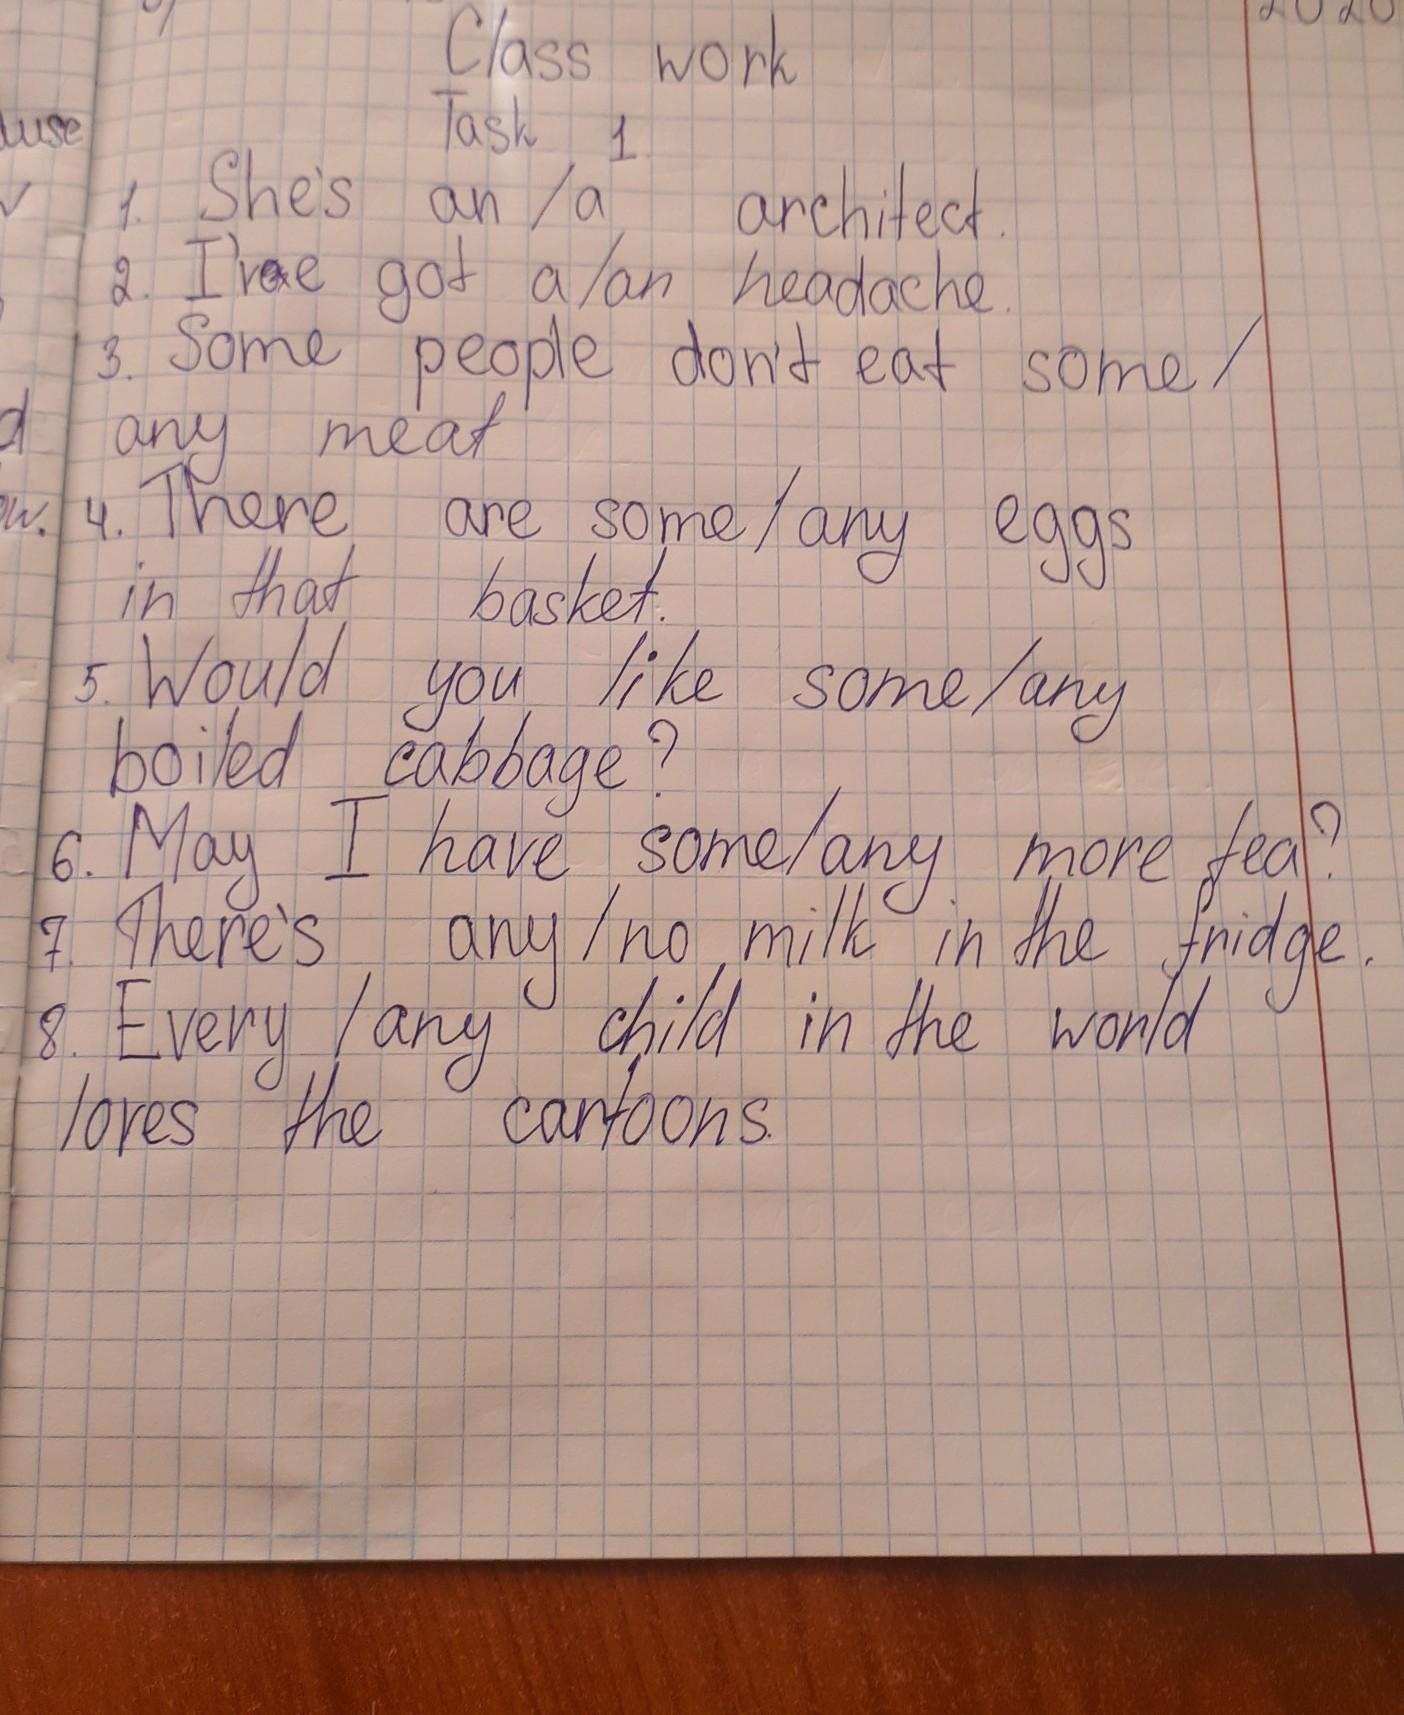 2020
Class work
Task 1
1. She's an/a architect.
2. I've got a/an headache.
3. Some people don't eat some/
any meat
4. There are some/any eggs
in that basket.
5. Would you like some/any
boiled cabbage?
6. May I have some/any more tea?
7. There's any/no milk in the fridge.
8. Every/any child in the world
loves the cartoons.